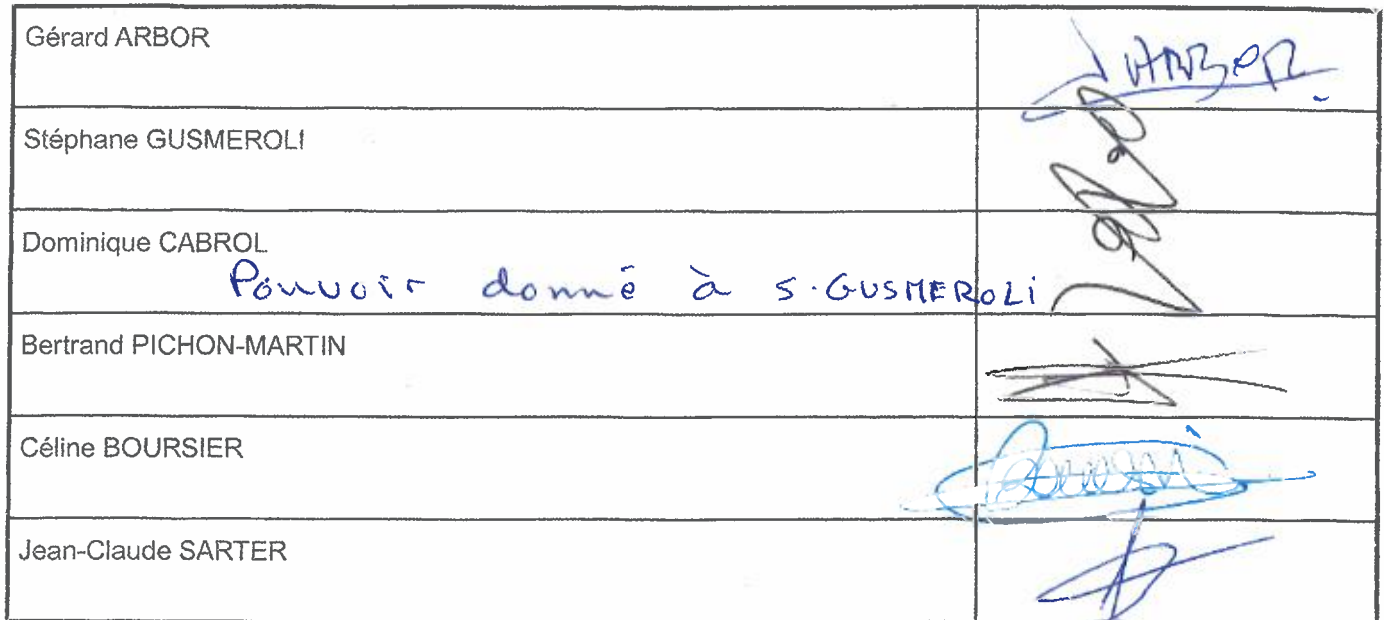 Gérard ARBOR
J ARBOR
Stéphane GUSMEROLI
Dominique CABROL
Pouvoir donné à S. GUSMEROLI
Bertrand PICHON-MARTIN
Céline BOURSIER
Jean-Claude SARTER